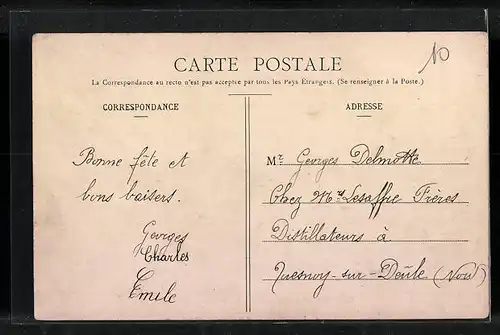 10
CARTE POSTALE
La Correspondance au recto n'est pas acceptée par tous les Pays Étrangers. (Se renseigner à la Poste.)
CORRESPONDANCE
ADRESSE
Bonne fête et
bons baisers.
Georges
Charles
Emile
Mr Georges Delmotte
Chez Mrs Lesaffre Frères
Distillateurs à
Quesnoy-sur-Deûle (Nord)